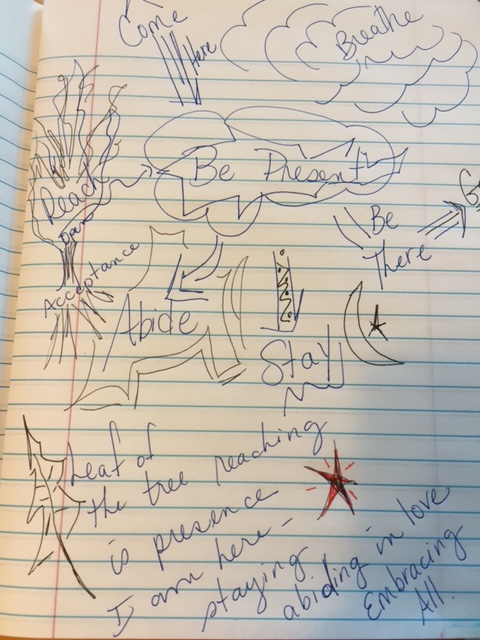 Come
Here
Breathe
Be Present
Reach
Be
There
Acceptance
Abide
Stay
Leaf of
the tree reaching
is presence
I am here -
staying
abiding in love
Embracing
All.